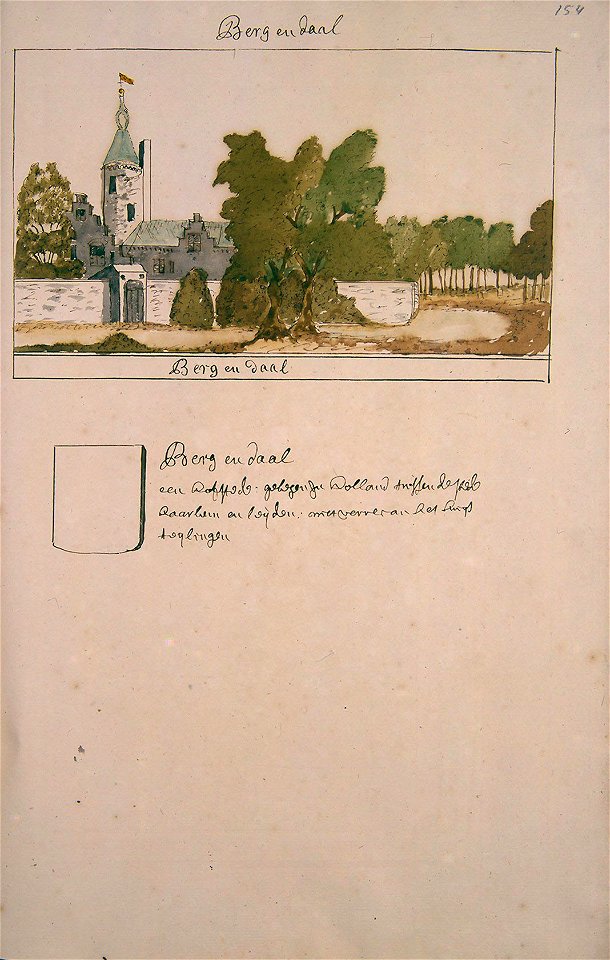 154
Berg en daal
Berg en daal
Berg en daal
een hofstede. gelegen in Holland tussen de stel
Haarlem en leyden. niet verre van het huys
teylingen